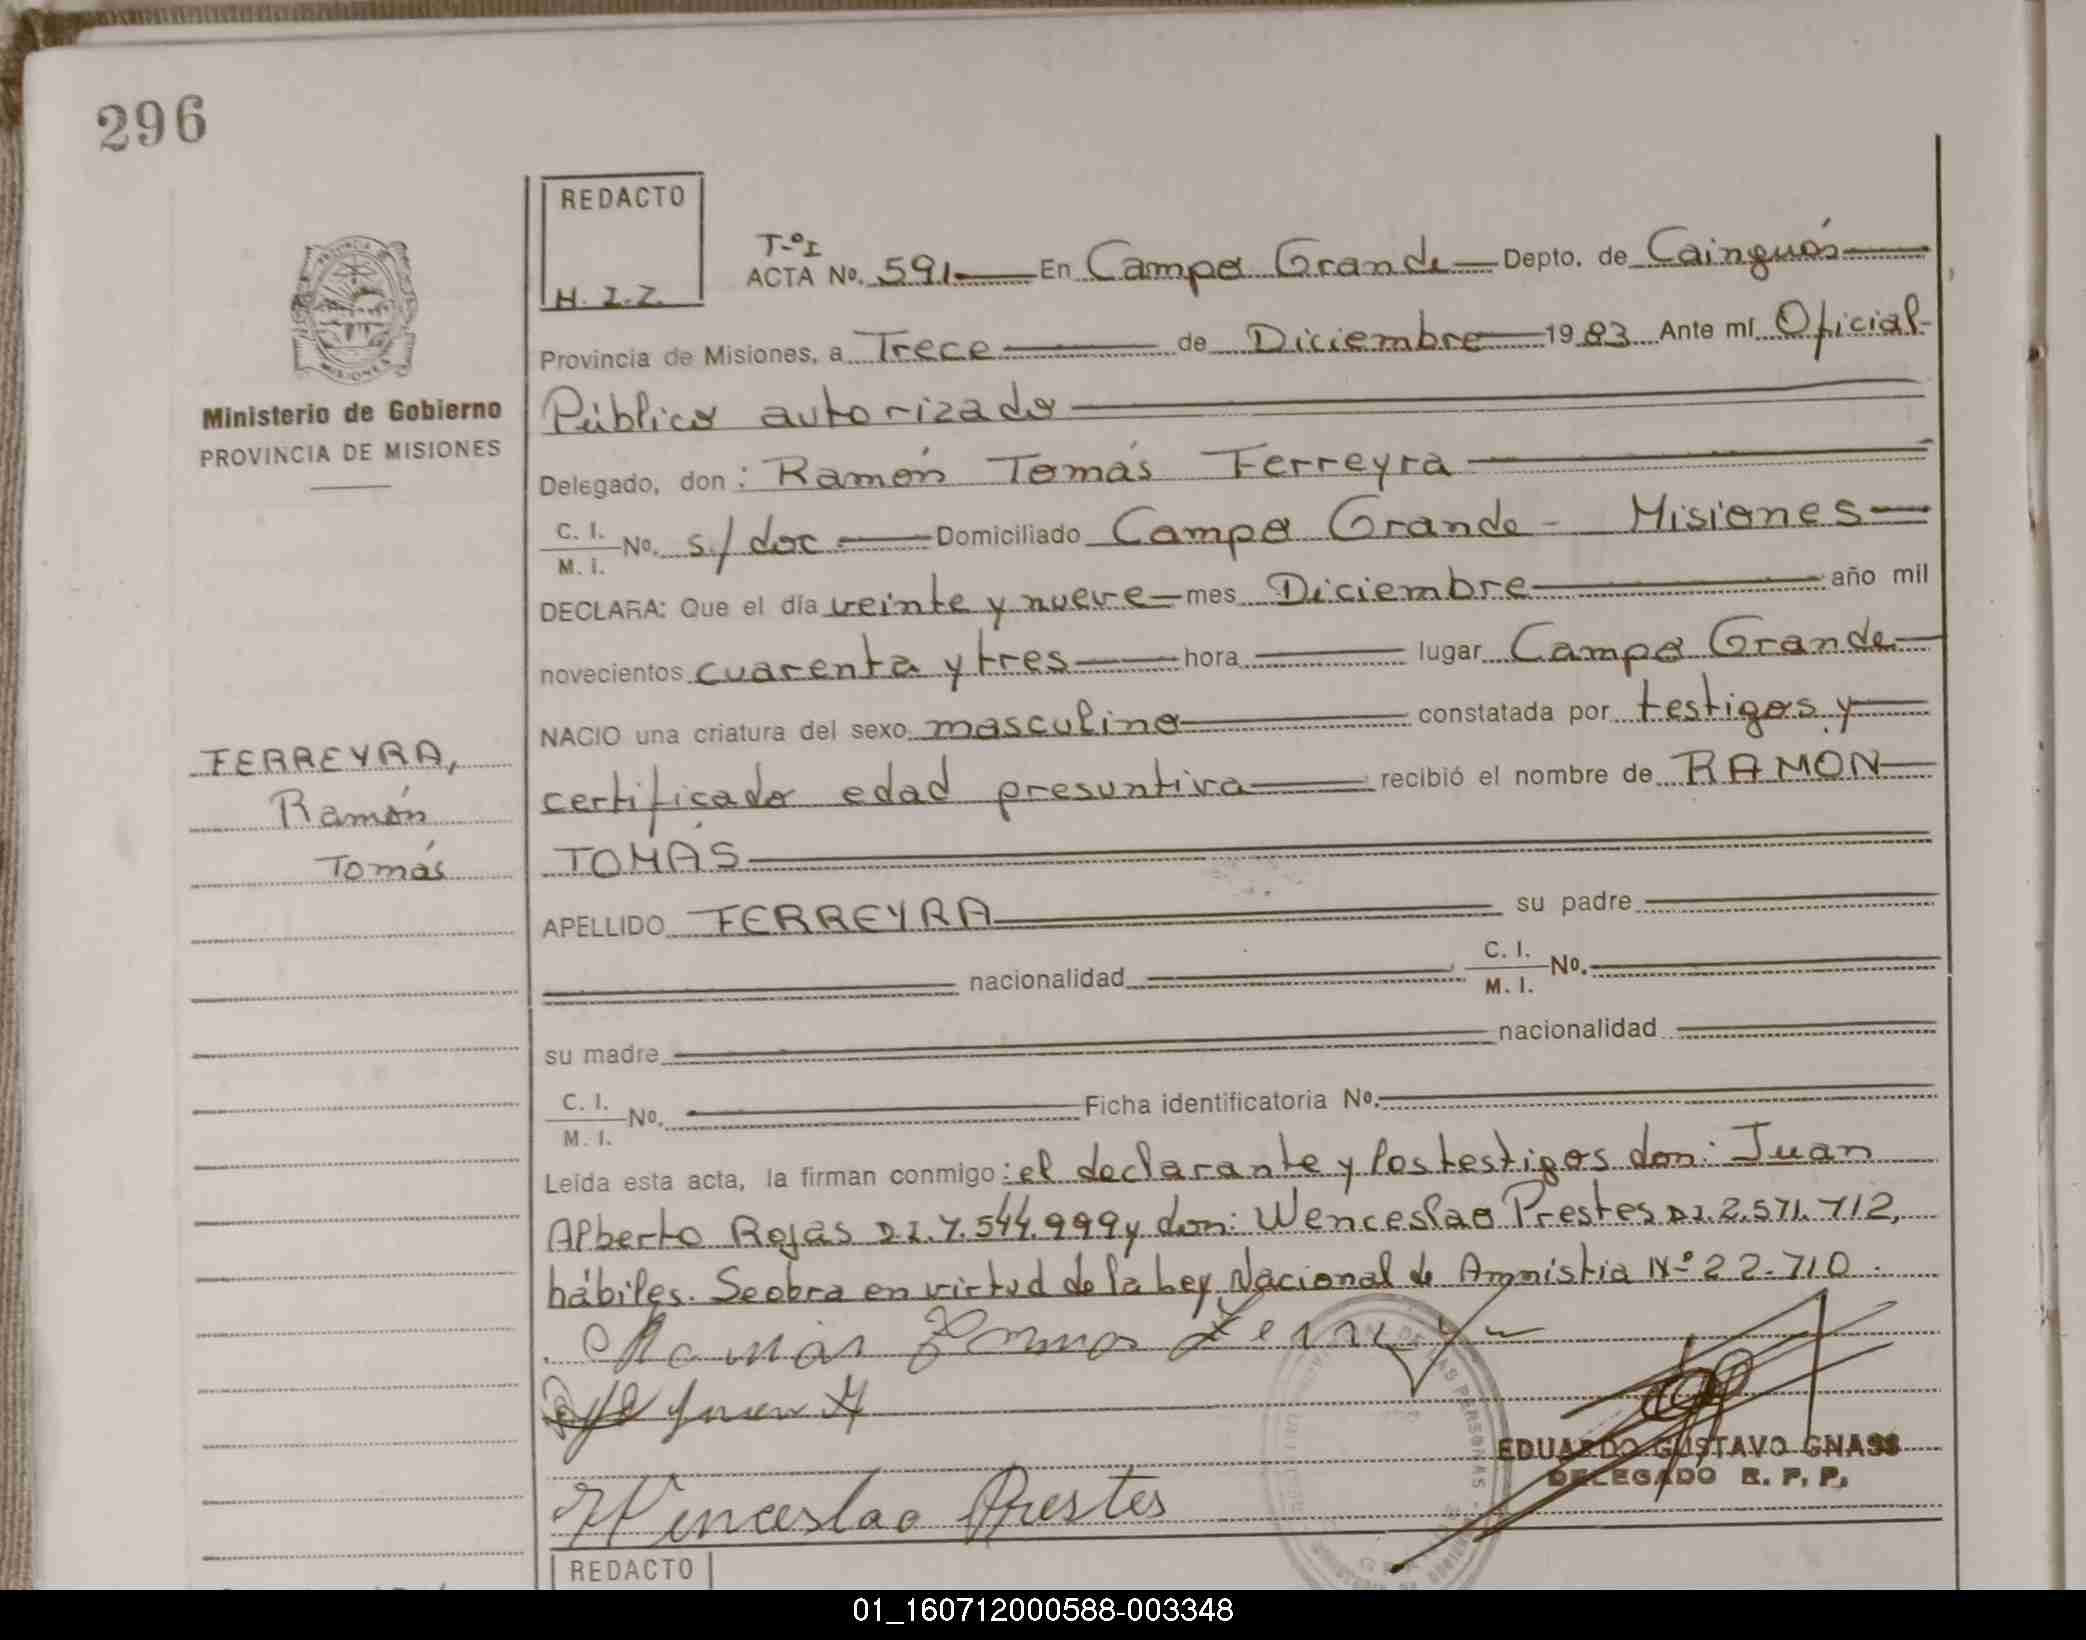 296
REDACTO
H. I. Z.
PROVINCIA DE
MISIONES
Ministerio de Gobierno
PROVINCIA DE MISIONES
T-º I
ACTA No. 591 En Campo Grande Depto. de Cainguás
Provincia de Misiones, a Trece de Diciembre 1983 Ante mí Oficial
Público autorizado
Delegado, don: Ramón Tomás Ferreyra
C. I. M. I. No. s/doc Domiciliado Campo Grande - Misiones
DECLARA: Que el día veinte y nueve mes Diciembre año mil
novecientos cuarenta y tres hora lugar Campo Grande
NACIO una criatura del sexo masculino constatada por testigos y
certificado edad presuntiva recibió el nombre de RAMON
TOMÁS
APELLIDO FERREYRA su padre
nacionalidad C. I. M. I. No.
su madre nacionalidad
C. I. M. I. No. Ficha identificatoria No.
Leída esta acta, la firman conmigo: el declarante y los testigos don: Juan
Alberto Rojas D.I. 7.544.999 y don: Wenceslao Prestes D.I. 2.571.712,
hábiles. Se obra en virtud de la Ley Nacional de Amnistia Nº 22.710.
FERREYRA,
Ramón
Tomás
Wenceslao Prestes
EDUARDO GUSTAVO GNASS
DELEGADO R. P. P.
REDACTO
01_160712000588-003348